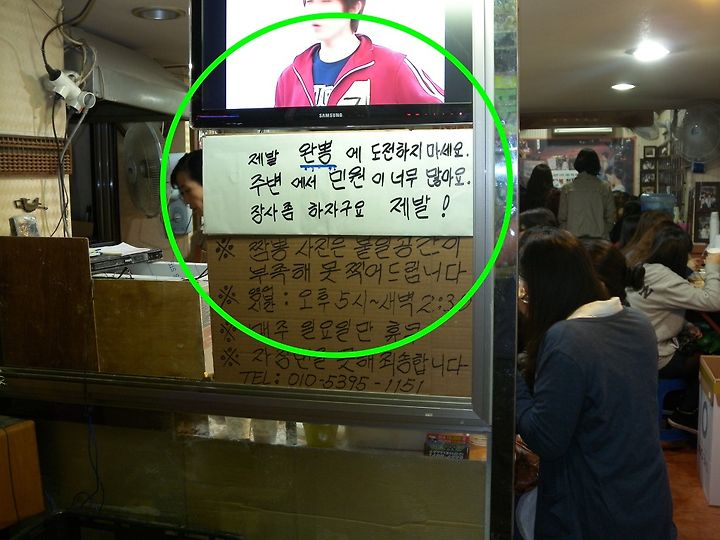 SAMSUNG
제발 완뽕 에 도전하지 마세요.
주변 에서 민원 이 너무 많아요.
장사좀 하자구요 제발!
※ 짬뽕 사진은 붙일공간이
부족해 못 찍어드립니다
※ : 오후 5시~새벽 2:30
※ 매주 월요일만 휴무
※ 자정넘음 못해 죄송합니다
TEL: 010-5395-1151